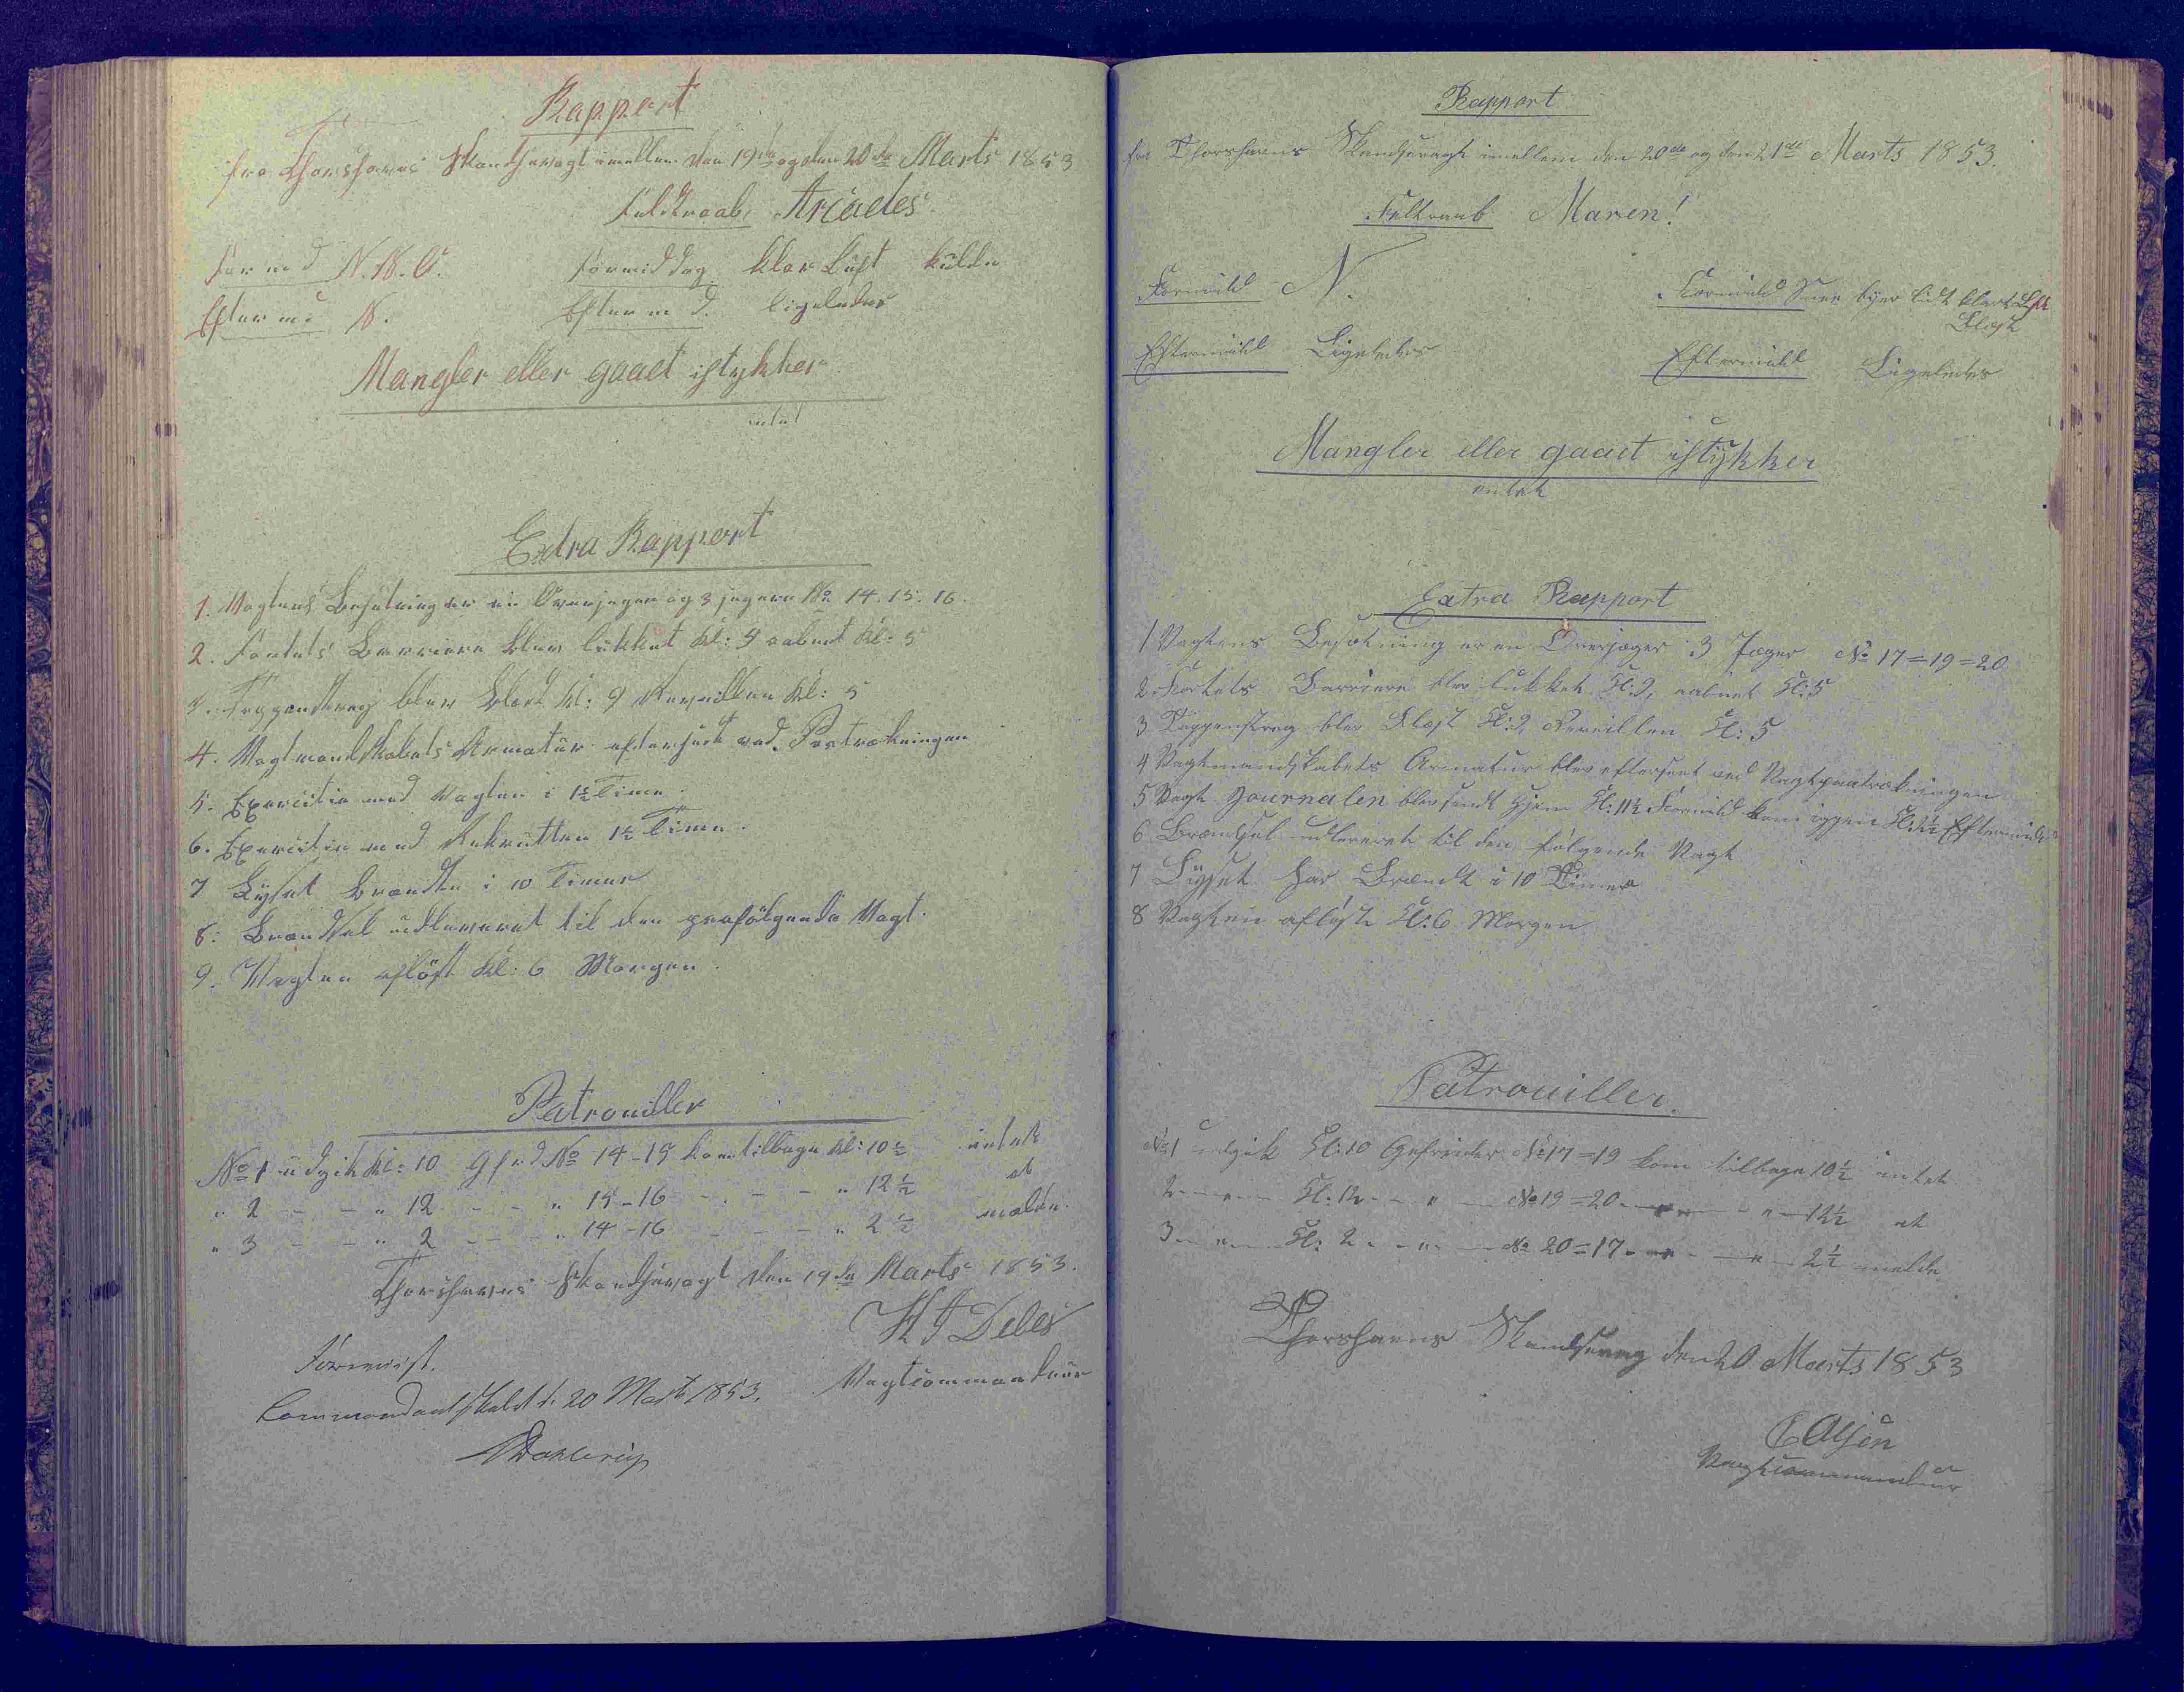 Rapport
fra Thorshavns Skandsevagt imellem den 19de og den 20de Marts 1853
Feldtraab, Arcades.
Formd N.N.O. Formiddag klar Luft kulde
Eftermd N. Eftermd. ligeledes
Mangler eller gaaet istykker
intet
Extra Rapport
1. Vagtens Besætning er en Overjæger og 3 jægere No 14. 15. 16.
2. Fortets Barriere blev lukket Kl: 9 aabnet Kl: 5
3. Tappenstreg blev Blæst Kl: 9 Reveillen Kl: 5
4. Vagtmandskabets Armatur efterseet ved Paatrækningen
5. Exercitie med Vagten i 1½ Time.
6. Exercitie med Rekrutten 1½ Time.
7 Lyset brændte i 10 Timer
8: Brændsel udleveret til den paafølgende Vagt.
9. Vagten afløst Kl: 6 Morgen.
Patrouiller
No 1 udgik Kl: 10 Gfrd No 14-15 kom tilbage Kl: 10½ intet
" 2 - - " 12 - - " 15-16 - - - " 12½ at
" 3 - - " 2 - - " 14-16 - - - " 2½ melde.
Thorshavns Skandsevagt den 19de Marts 1853.
H J Debes
Vagtcommandeur
Forevist.
Commandantskabet d. 20 Marts 1853.
Rapport
fra Thorshavns Skandsevagt imellem den 20de og den 21de Marts 1853.
Feltraab Maren!
Formidd N. Formidd Snee byer lidt klart Luft
Blæst
Eftermidd Ligeledes Eftermidd Ligeledes
Mangler eller gaaet istykker
intet
Extra Rapport
1 Vagtens Besætning er en Overjæger 3 Jæger No 17=19=20
2 Fortets Barriere blev lukket Kl: 9, aabnet Kl: 5
3 Tappenstreg blev Blæst Kl: 9, Reveillen Kl: 5
4 Vagtmandskabets Armatur blev efterseet ved Vagtpaatrækningen
5 Vagt Journalen blev sendt hjem Kl: 11½ Formidd kom iggen Kl: Eftermidd
6 Brændsel udleveret til den følgende Vagt
7 Lyset har Brændt i 10 Timer
8 Vagten afløste Kl: 6 Morgen
Patrouiller.
No 1 udgik Kl: 10 Gefreider No 17=19 kom tilbage 10½ intet
2 - " - Kl: 12 - " - No 19=20 - " - " - 12½ at
3 - " - Kl: 2 - " - No 20=17 - " - " - 2½ melde
Thorshavns Skandsevag den 20 Marts 1853
C Olsen
Vagtcommandeur